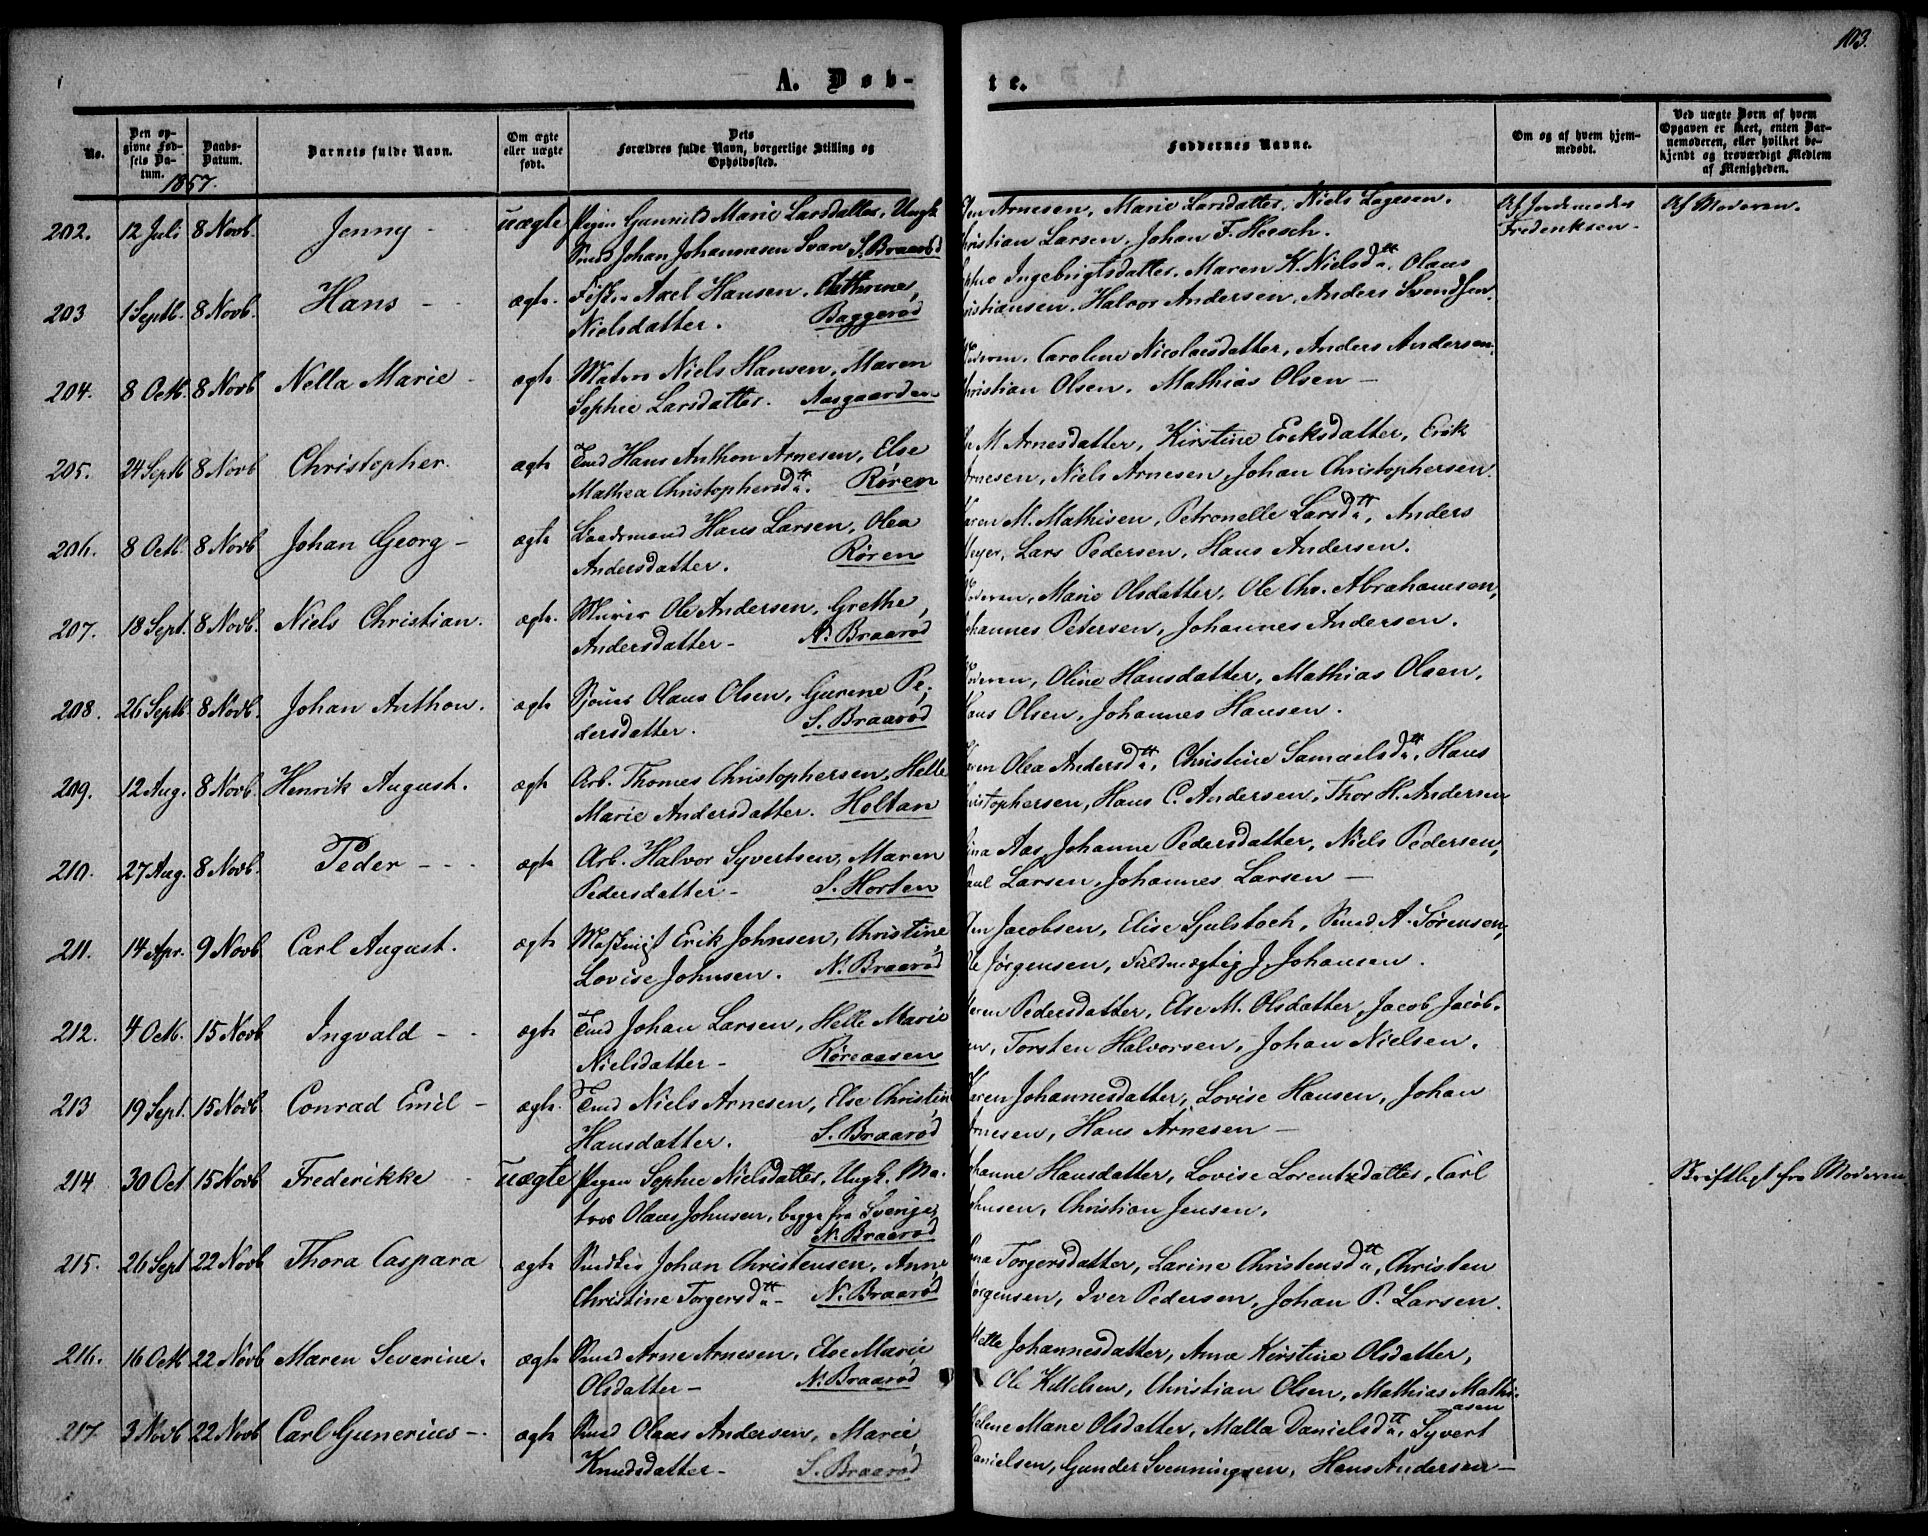 103.
A. Døb-
te.
No.
Den op-
givne Fød-
sels Da-
tum.
Daabs-
Datum.
Barnets fulde Navn.
Om ægte
eller uægte
født.
Dets
Forældres fulde Navn, borgerlige Stilling og
Opholdssted.
Faddernes Navne.
Om og af hvem hjem-
medøbt.
Ved uægte Børn af hvem
Opgaven er skeet, enten Bar-
nemoderen, eller hvilket be-
kjendt og troværdigt Medlem
af Menigheden.
1857.
202. 12 Juli 8 Novb. Jenny - uægte Pigen Gunnild Marie Larsdatter, Ungk.
Smed Johan Johannesen Svan S. Braarød
Arnesen, Marie Larsdatter, Niels Lagesen.
Christian Larsen, Johan F. Heesch.
Af Jordemoder
Frederiksen -
Af Moderen.
203 1 Septb. 8 Novb. Hans - ægte. Fisker Axel Hansen, Cathrine,
Nielsdatter. Baggerød
Ingebrigtsdatter, Maren K. Nielsdtr, Olaus
Christiansen, Halvor Andersen, Anders Svendsen.
204. 8 Octb. 8 Novb Nella Marie - ægte Matros Niels Hansen, Maren
Sophie Larsdatter. Aasgaarden
Moderen, Caroline Nicolaisdatter, Anders Andersen,
Christian Olsen, Mathias Olsen -
205. 24 Septb 8 Novb Christopher. ægte Tmd Hans Anthon Arnesen, Else
Mathea Christophersdtr. Røren
M. Arnesdatter, Kirstine Eriksdatter, Erik
Arnesen, Niels Arnesen, Johan Christophersen.
206. 8 Octb 8 Novb Johan Georg - ægte Baadsmand Hans Larsen, Olea
Andersdatter. Røren
Karen M. Mathisen, Petronelle Larsdtr, Anders
Meyer, Lars Pedersen, Hans Andersen.
207. 18 Sept. 8 Novb. Niels Christian. ægte. Murer Ole Andersen, Grethe,
Andersdatter - N. Braarød
Moderen, Marie Olsdatter, Ole Chr. Abrahamsen,
Johannes Petersen, Johannes Andersen.
208. 26 Septb. 8 Novb. Johan Anthon. ægte Olaus Olsen, Gurine Pe-
dersdatter. S. Braarød
Moderen, Oline Hansdatter, Mathias Olsen,
Hans Olsen, Johannes Hansen.
209. 12 Aug. 8 Novb. Henrik August. ægte Arb. Thomes Christophersen, Helle
Marie Andersdatter. Holtan
Karen Olea Andersdtr, Christine Samuelsdtr, Hans
Christophersen, Hans C. Andersen, Thor H. Andersen
210. 27 Aug. 8 Novb. Peder - - ægte Arb. Halvor Syvertsen, Maren
Pedersdatter - S. Horten
Aas, Johanne Pedersdatter, Niels Pedersen,
Paul Larsen, Johannes Larsen -
211. 14 Apr. 9 Novb. Carl August. ægte Maskinist Erik Johnsen, Christine
Lovise Johnsen. N. Braarød
Jacobsen, Elise Gulstoch, Smed A. Sørensen,
Ole Jørgensen, Fuldmægtig J. Johansen.
212. 4 Octb. 15 Novb Ingvald - - ægte Tmd Johan Larsen, Helle Marie
Nielsdatter - Røreaasen
Maren Pedersdatter, Else M. Olsdatter, Jacob Jacob-
sen, Torsten Halvorsen, Johan Nielsen.
213 19 Sept. 15 Novb. Conrad Emil - ægte. Tmd Niels Arnesen, Else Christine
Hansdatter. S. Braarød
Karen Johannesdatter, Lovise Hansen, Johan
Arnesen, Hans Arnesen -
214 30 Oct 15 Novb Frederikke - uægte Pigen Sophie Nielsdatter, Ungk. Ma-
tros Olaus Johnsen, begge fra Sverige,
N. Braarød
Johanne Hansdatter, Lovise Lorentzdatter, Carl
Johnsen, Christian Jensen.
Skriftligt fra Moderen.
215. 26 Sept 22 Novb Thora Caspara ægte Johan Christensen, Anne
Christine Torgersdtr - N. Braarød
Torgersdatter, Larine Christensdtr, Christen
Jørgensen, Iver Pedersen, Johan P. Larsen.
216. 16 Octb 22 Novb Maren Severine. ægte Smed Arne Arnesen, Else Marie
Olsdatter - N. Braarød
Helle Johannesdatter, Anna Kirstine Olsdatter,
Ole Kittelsen, Christian Olsen, Mathias Mathi-
asen
217. 3 Novb 22 Novb Carl Gunerius - ægte Smed Olaus Andersen, Marie,
Knudsdatter - S. Braarød
Helene Marie Olsdatter, Malla Danielsdtr, Syvert
Danielsen, Gunder Svenningsen, Hans Andersen -